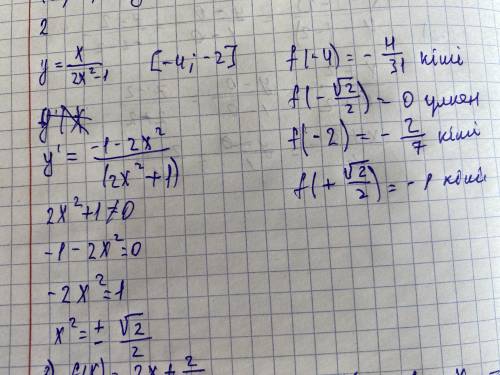 2
y = x/(2x²-1) [-4; -2]
y' = (-1-2x²)/(2x²+1)
2x²+1≠0
-1-2x²=0
-2x²=1
x²=± √2/2
f(-4) = -4/31 кіші
f(-√2/2) = 0 үлкен
f(-2) = -2/7 кіші
f(+√2/2) = -1 кіші
2) f(x) = 2x + 2